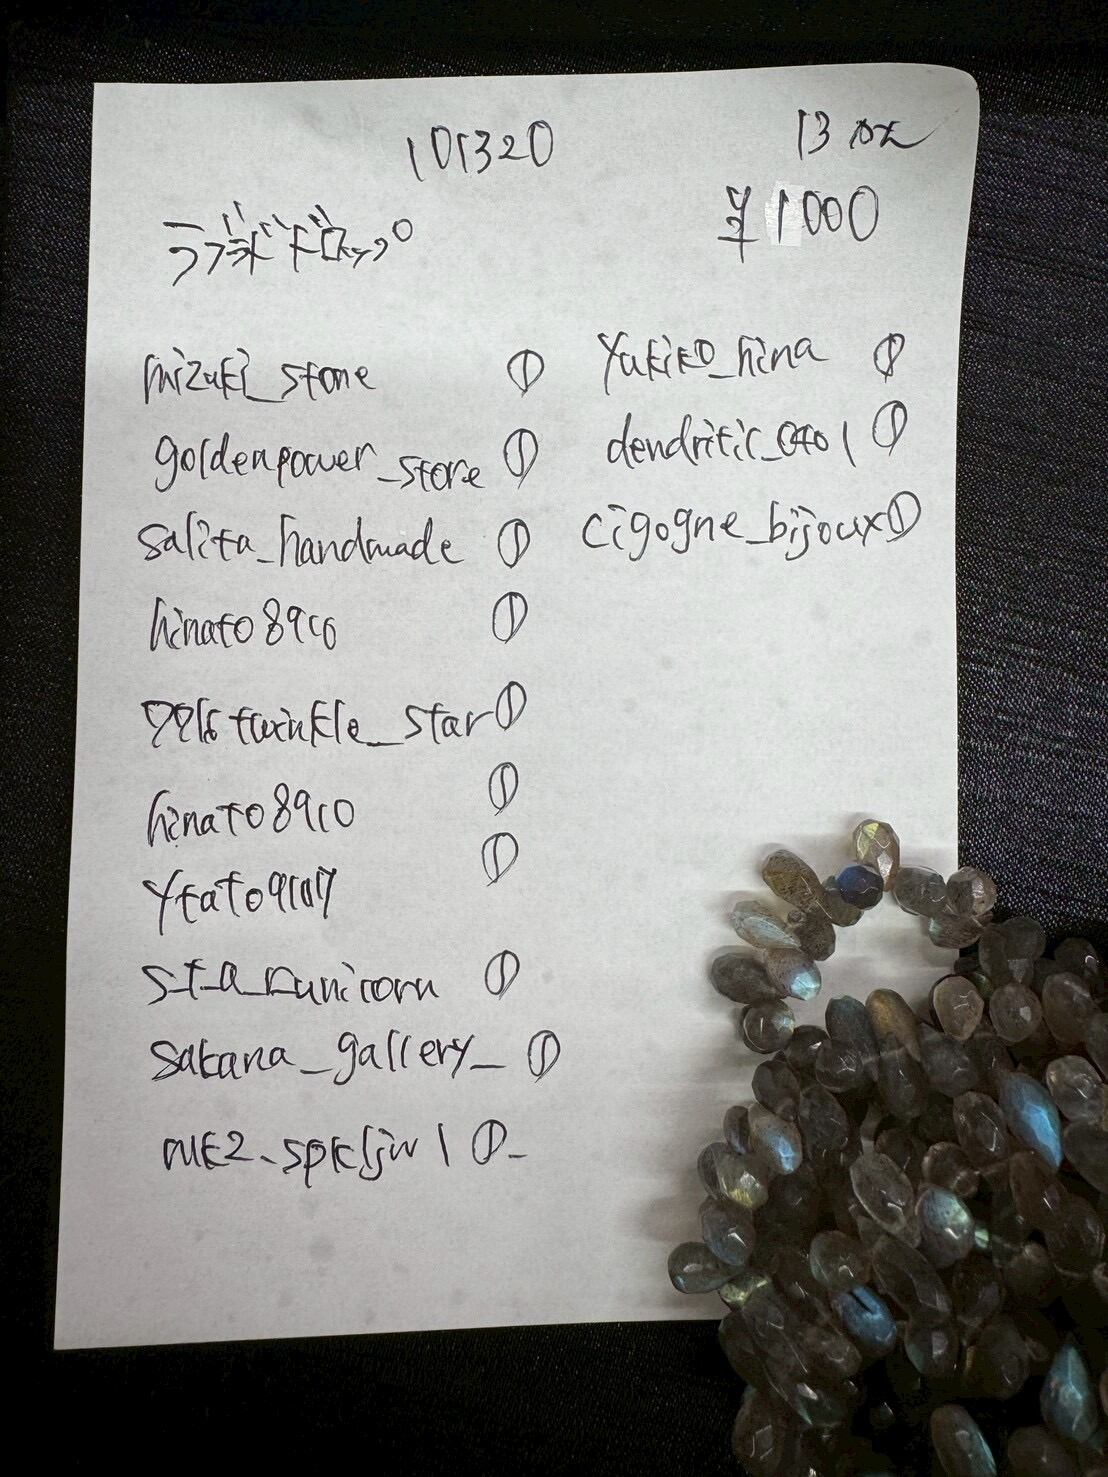 101320
13
¥1000
ドロップ
mizuki_stone ①
goldenpower_store ①
salita_handmade ①
hinato8910 ①
twinkle_star ①
hinato8910 ①
ytato9107 ①
s_t_a_r_unicorn ①
sakana_gallery_ ①
①
yukiko_hina ①
dendritic_0401 ①
cigogne_bijoux ①